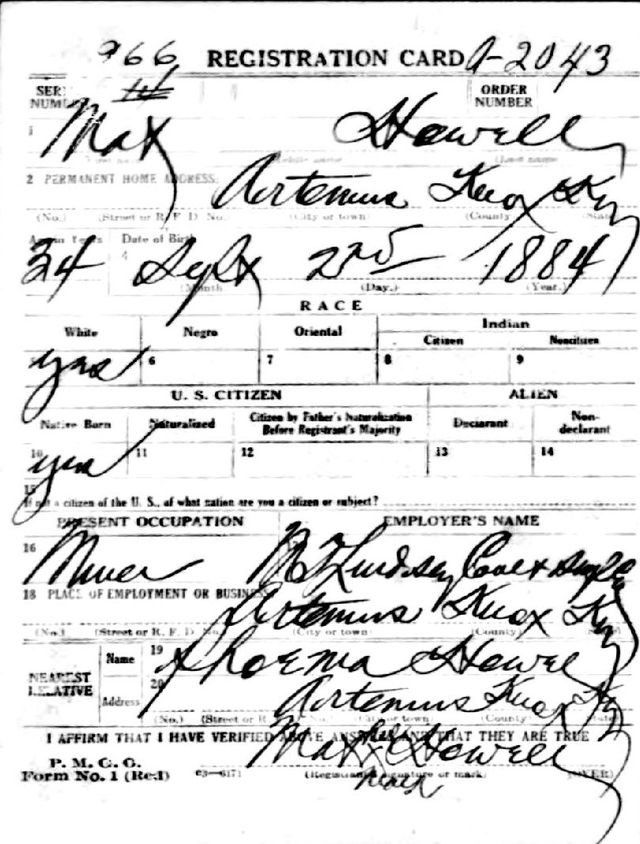 966 REGISTRATION CARD A-2043
SER
NUMBER
ORDER
NUMBER
1 Max Howell
2 PERMANENT HOME ADDRESS:
Artemus Knox Ky
(No.) (Street or R. F. D. No.) (City or town) (County) (State)
Age in Years Date of Birth
34 Sept 2nd 1884
(Month) (Day.) (Year.)
RACE
White Negro Oriental Indian
Citizen Noncitizen
yes 6 7 8 9
U. S. CITIZEN ALIEN
Native Born Naturalized Citizen by Father's Naturalization Before Registrant's Majority Declarant Non-declarant
10 yes 11 12 13 14
15
If not a citizen of the U. S., of what nation are you a citizen or subject?
PRESENT OCCUPATION EMPLOYER'S NAME
16 Miner Lindsay
18 PLACE OF EMPLOYMENT OR BUSINESS:
Artemus Knox Ky
(No.) (Street or R. F. D. No.) (City or town) (County)
NEAREST RELATIVE
Name 19 Howell
Address 20 Artemus Knox Ky
(No.) (Street or R. (City or town) (County) (State)
I AFFIRM THAT I HAVE VERIFIED ABOVE ANSWERS AND THAT THEY ARE TRUE
P. M. G. O.
Form No. 1 (Red) c3—6171 Max Howell
(Registrant's signature or mark) (OVER)
mark